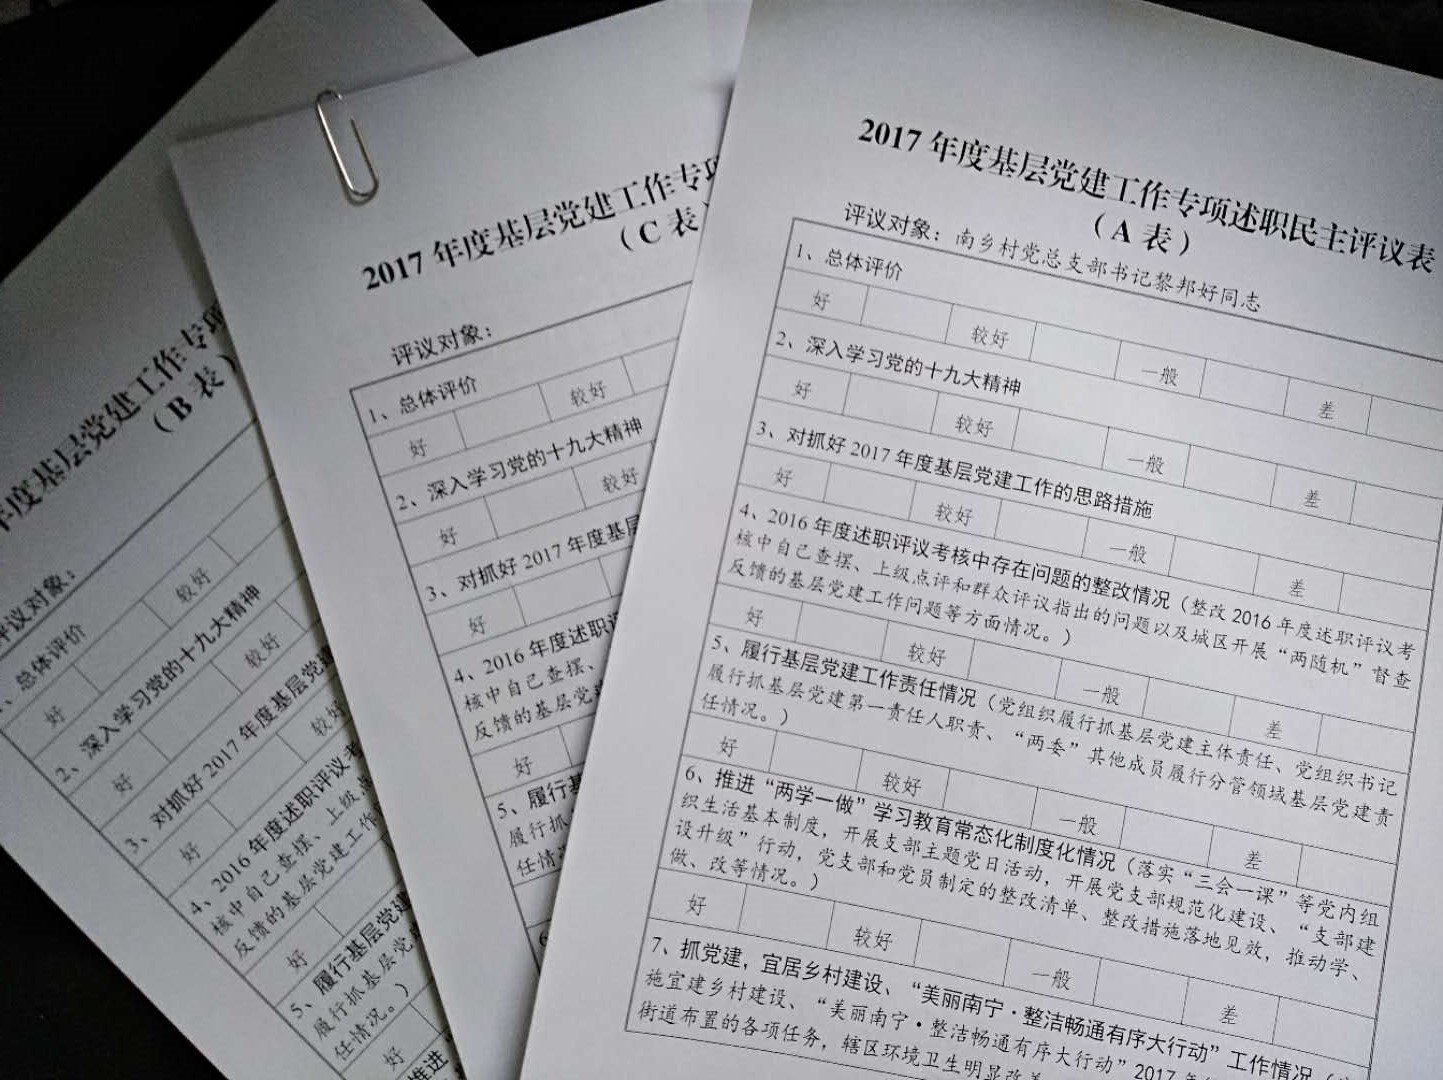 2017 年度基层党建工作专项述职民主评议表
（A 表）
评议对象：南乡村党总支部书记黎邦好同志
1、总体评价
好 较好 一般 差
2、深入学习党的十九大精神
好 较好 一般 差
3、对抓好 2017 年度基层党建工作的思路措施
好 较好 一般 差
4、2016 年度述职评议考核中存在问题的整改情况（整改 2016 年度述职评议考
核中自己查摆、上级点评和群众评议指出的问题以及城区开展“两随机”督查
反馈的基层党建工作问题等方面情况。）
好 较好 一般 差
5、履行基层党建工作责任情况（党组织履行抓基层党建主体责任、党组织书记
履行抓基层党建第一责任人职责、“两委”其他成员履行分管领域基层党建责
任情况。）
好 较好 一般 差
6、推进“两学一做”学习教育常态化制度化情况（落实“三会一课”等党内组
织生活基本制度，开展支部主题党日活动，开展党支部规范化建设、“支部建
设升级”行动，党支部和党员制定的整改清单、整改措施落地见效，推动学、
做、改等情况。）
好 较好 一般 差
7、抓党建，宜居乡村建设、“美丽南宁·整洁畅通有序大行动”工作情况（
施宜建乡村建设、“美丽南宁·整洁畅通有序大行动”2017 年
街道布置的各项任务，辖区环境卫生明显改善
2017 年度基层党建工作专项
（C 表）
评议对象：
1、总体评价
好 较好
2、深入学习党的十九大精神
好 较好
3、对抓好 2017 年度基层
好
4、2016 年度述职评
核中自己查摆、
反馈的基层党
好
5、履行基
履行抓
任情
6
年度基层党建工作专项
（B 表）
评议对象：
、总体评价
好 较好
2、深入学习党的十九大精神
好 较好
3、对抓好 2017 年度基层党建
好 较好
4、2016 年度述职评议考
核中自己查摆、上级点
反馈的基层党建工作
好
5、履行基层党建
履行抓基层党
任情况。）
好
推进“